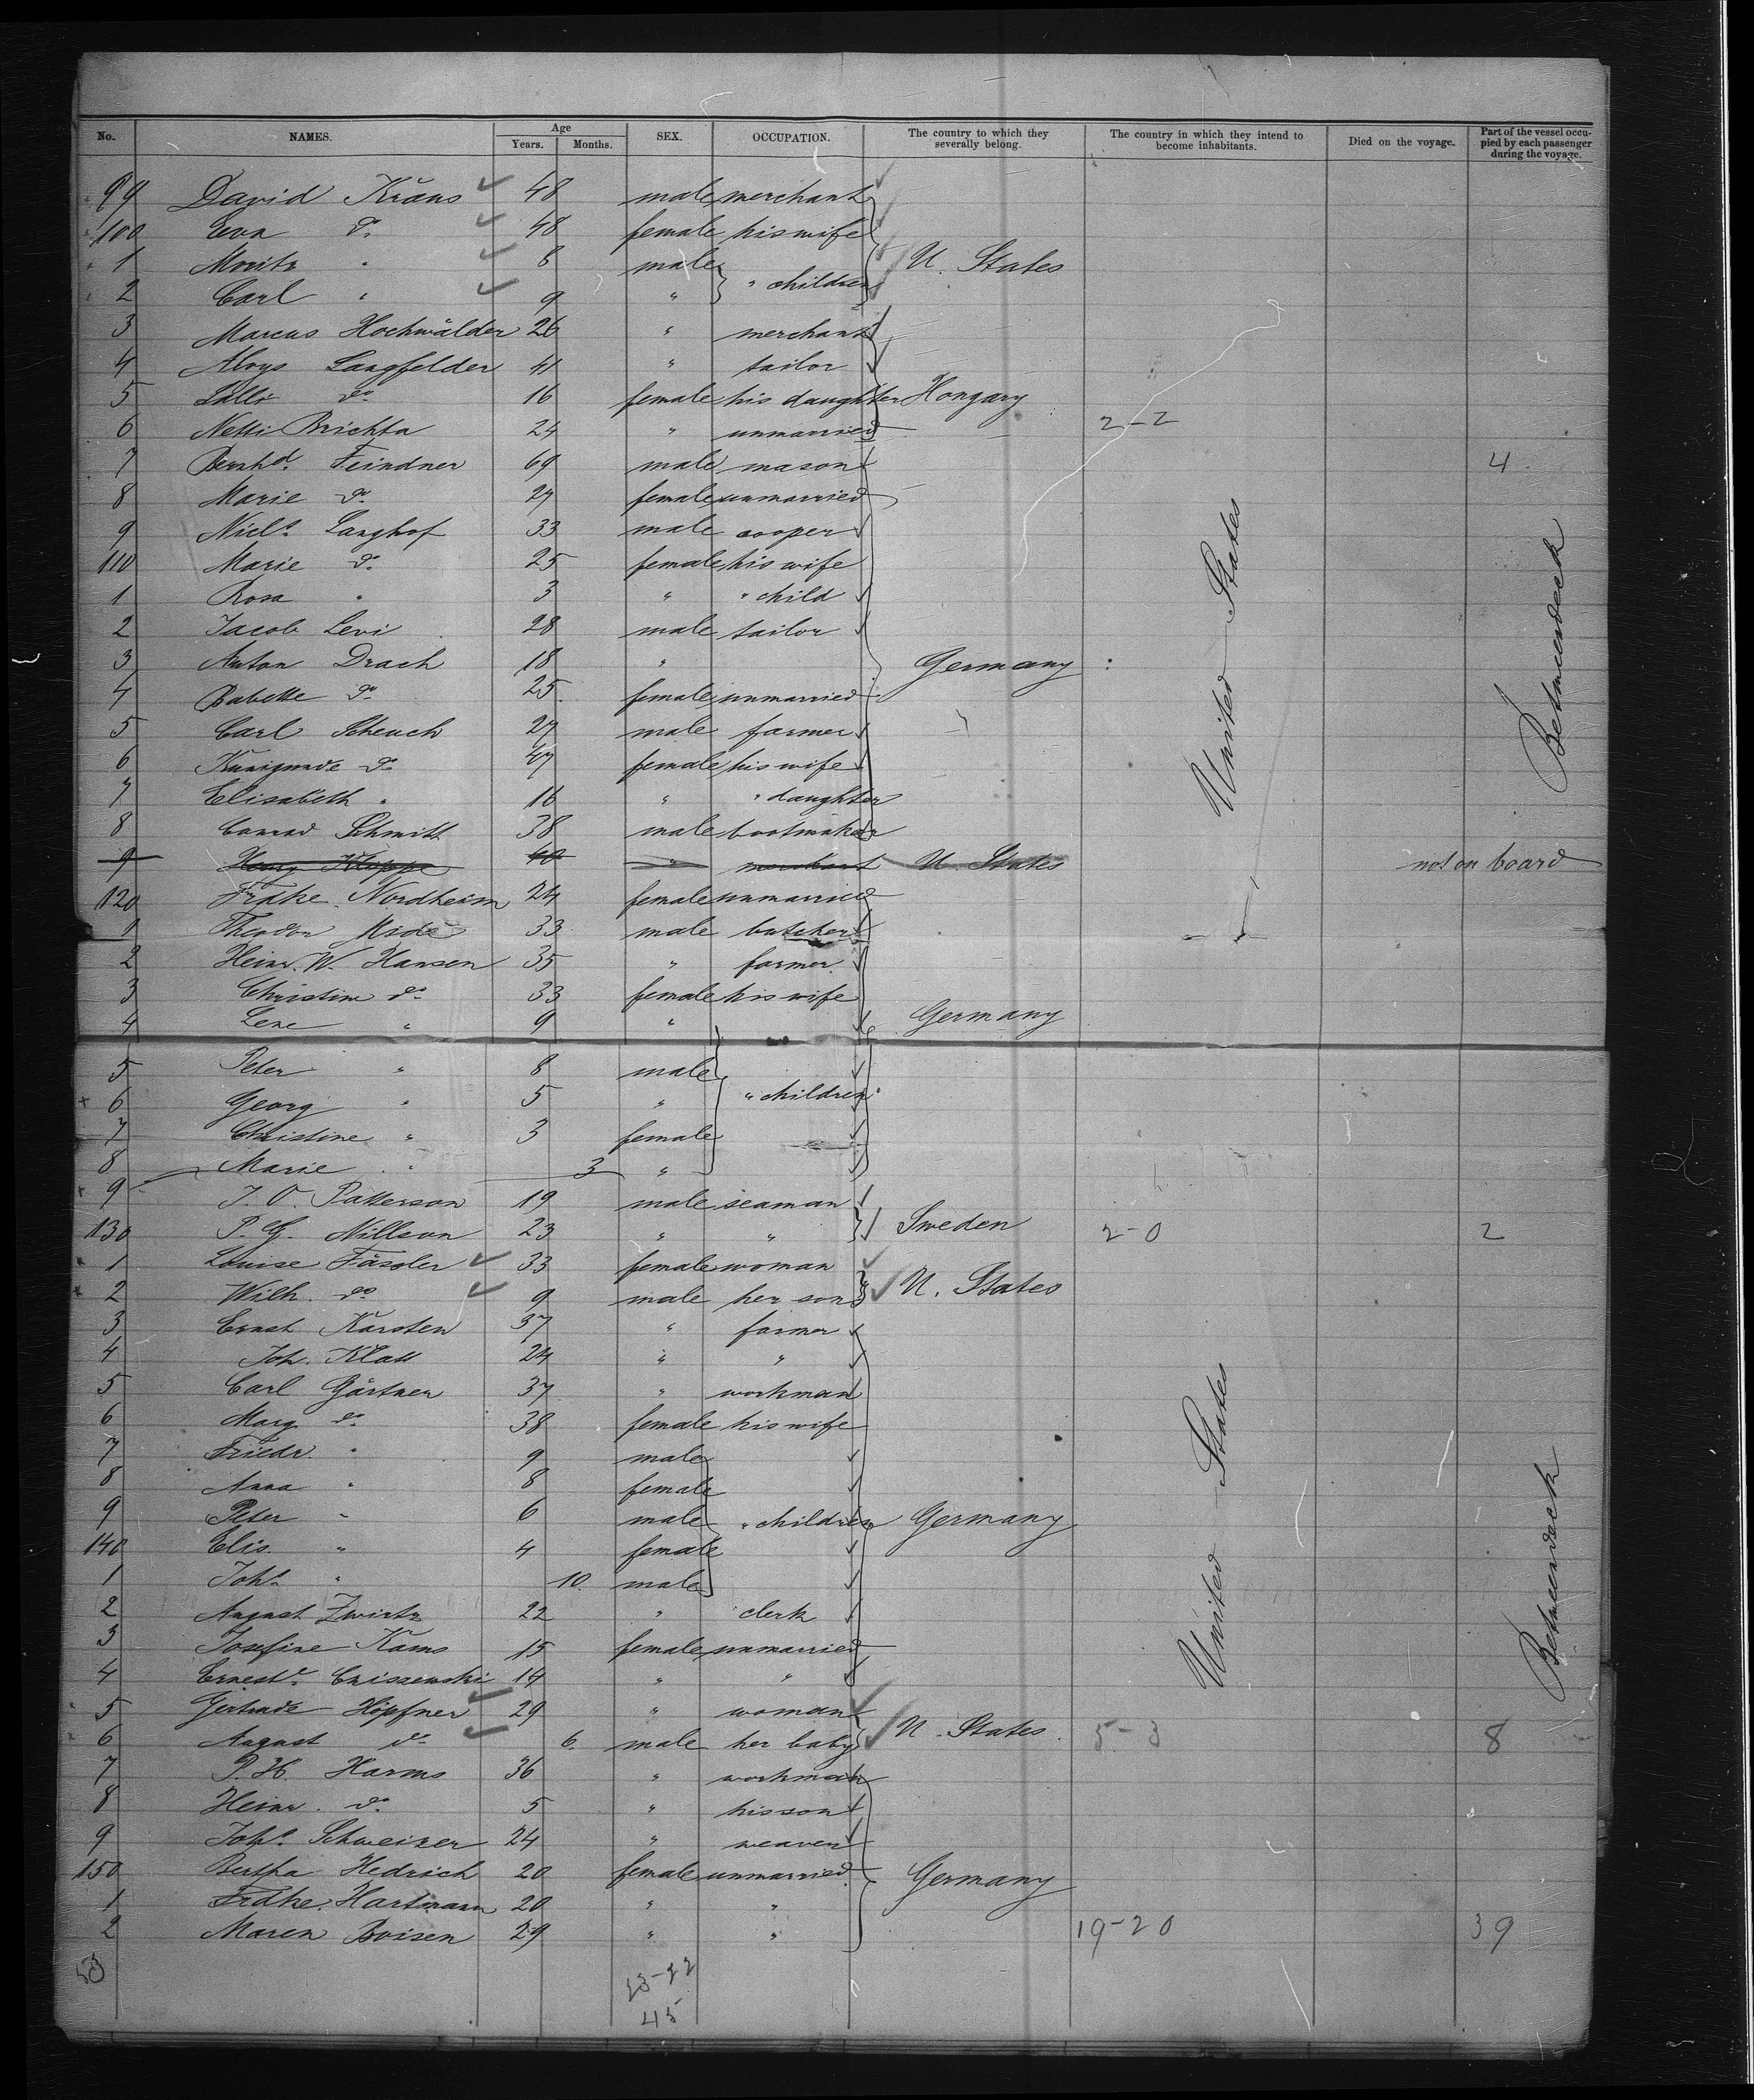 No. NAMES. Age SEX. OCCUPATION. The country to which they severally belong. The country in which they intend to become inhabitants. Died on the voyage. Part of the vessel occupied by each passenger during the voyage.
Years. Months.
99 David Kraus 48 male merchant
100 Eva do 48 female his wife
1 Moritz " 8 male U. States
2 Carl " 9 " " children
3 Marcus Hochwälder 26 " merchant
4 Aloys Langfelder 41 " tailor
5 Lalli do 16 female his daughter Hongary
6 Netti Brichta 24 " unmarried 2-2
7 Bernhd. Feindner 69 male mason 4
8 Marie do 27 female unmarried
9 Nicls. Langhof 33 male cooper
110 Marie do 25 female his wife
1 Rosa " 3 " " child
2 Jacob Levi 28 male tailor
3 Anton Drach 18 " Germany
4 Babette do 25 female unmarried
5 Carl Scheuch 27 male farmer
6 Kunigunde do 47 female his wife
7 Elisabeth " 16 " " daughter
8 Conrad Schmitt 38 male bootmaker
9 Henry Kloppe 40 " merchant U. States not on board
120 Fridke. Nordheim 24 female unmarried
1 Theodor Mode 33 male butcher
2 Heinr. W. Hansen 35 " farmer
3 Christine do 33 female his wife
4 Lene " 9 " Germany
5 Peter " 8 male
6 Georg " 5 " " children
7 Christine " 3 female
8 Marie " 3 "
9 J. O. Patterson 19 male seaman
130 P. G. Nillson 23 " " Sweden 2-0 2
1 Louise Fässler 33 female woman
2 Wilh. do 9 male her son U. States
3 Ernst Karsten 37 " farmer
4 Joh. Klatt 24 " "
5 Carl Gärtner 37 " workman
6 Marg. do 38 female his wife
7 Friedr. " 9 male
8 Anna " 8 female
9 Peter " 6 male " children Germany
140 Elis. " 4 female
1 Johs. " 10. male
2 August Zwirtz 22 " clerk
3 Josefine Kams 15 female unmarried
4 Erneste. Criszewski 14 " "
5 Gertrude Höpfner 29 " woman
6 August do 6. male her baby U. States. 5-3 8
7 P. H. Harms 36 " workman
8 Heinr. do 5 " his son
9 Johs. Schweizer 24 " weaver
150 Bertha Hedrich 20 female unmarried Germany
1 Fridke. Hartmann 20 " "
2 Maren Boisen 29 " " 19-20 39
53 23-22
45
United States
Betweendeck
United States
Betweendeck